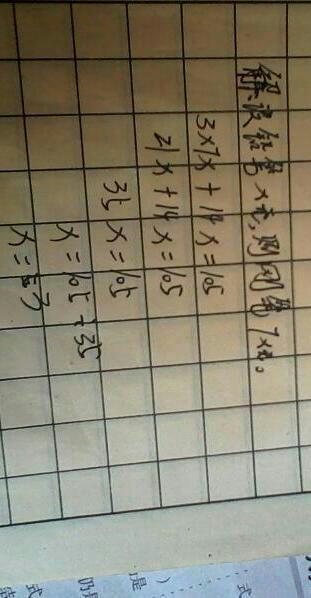 解设铅笔x元,则钢笔7x元。
3×7x+14x=105
21x+14x=105
35x=105
x=105÷35
x=3
是
)
式